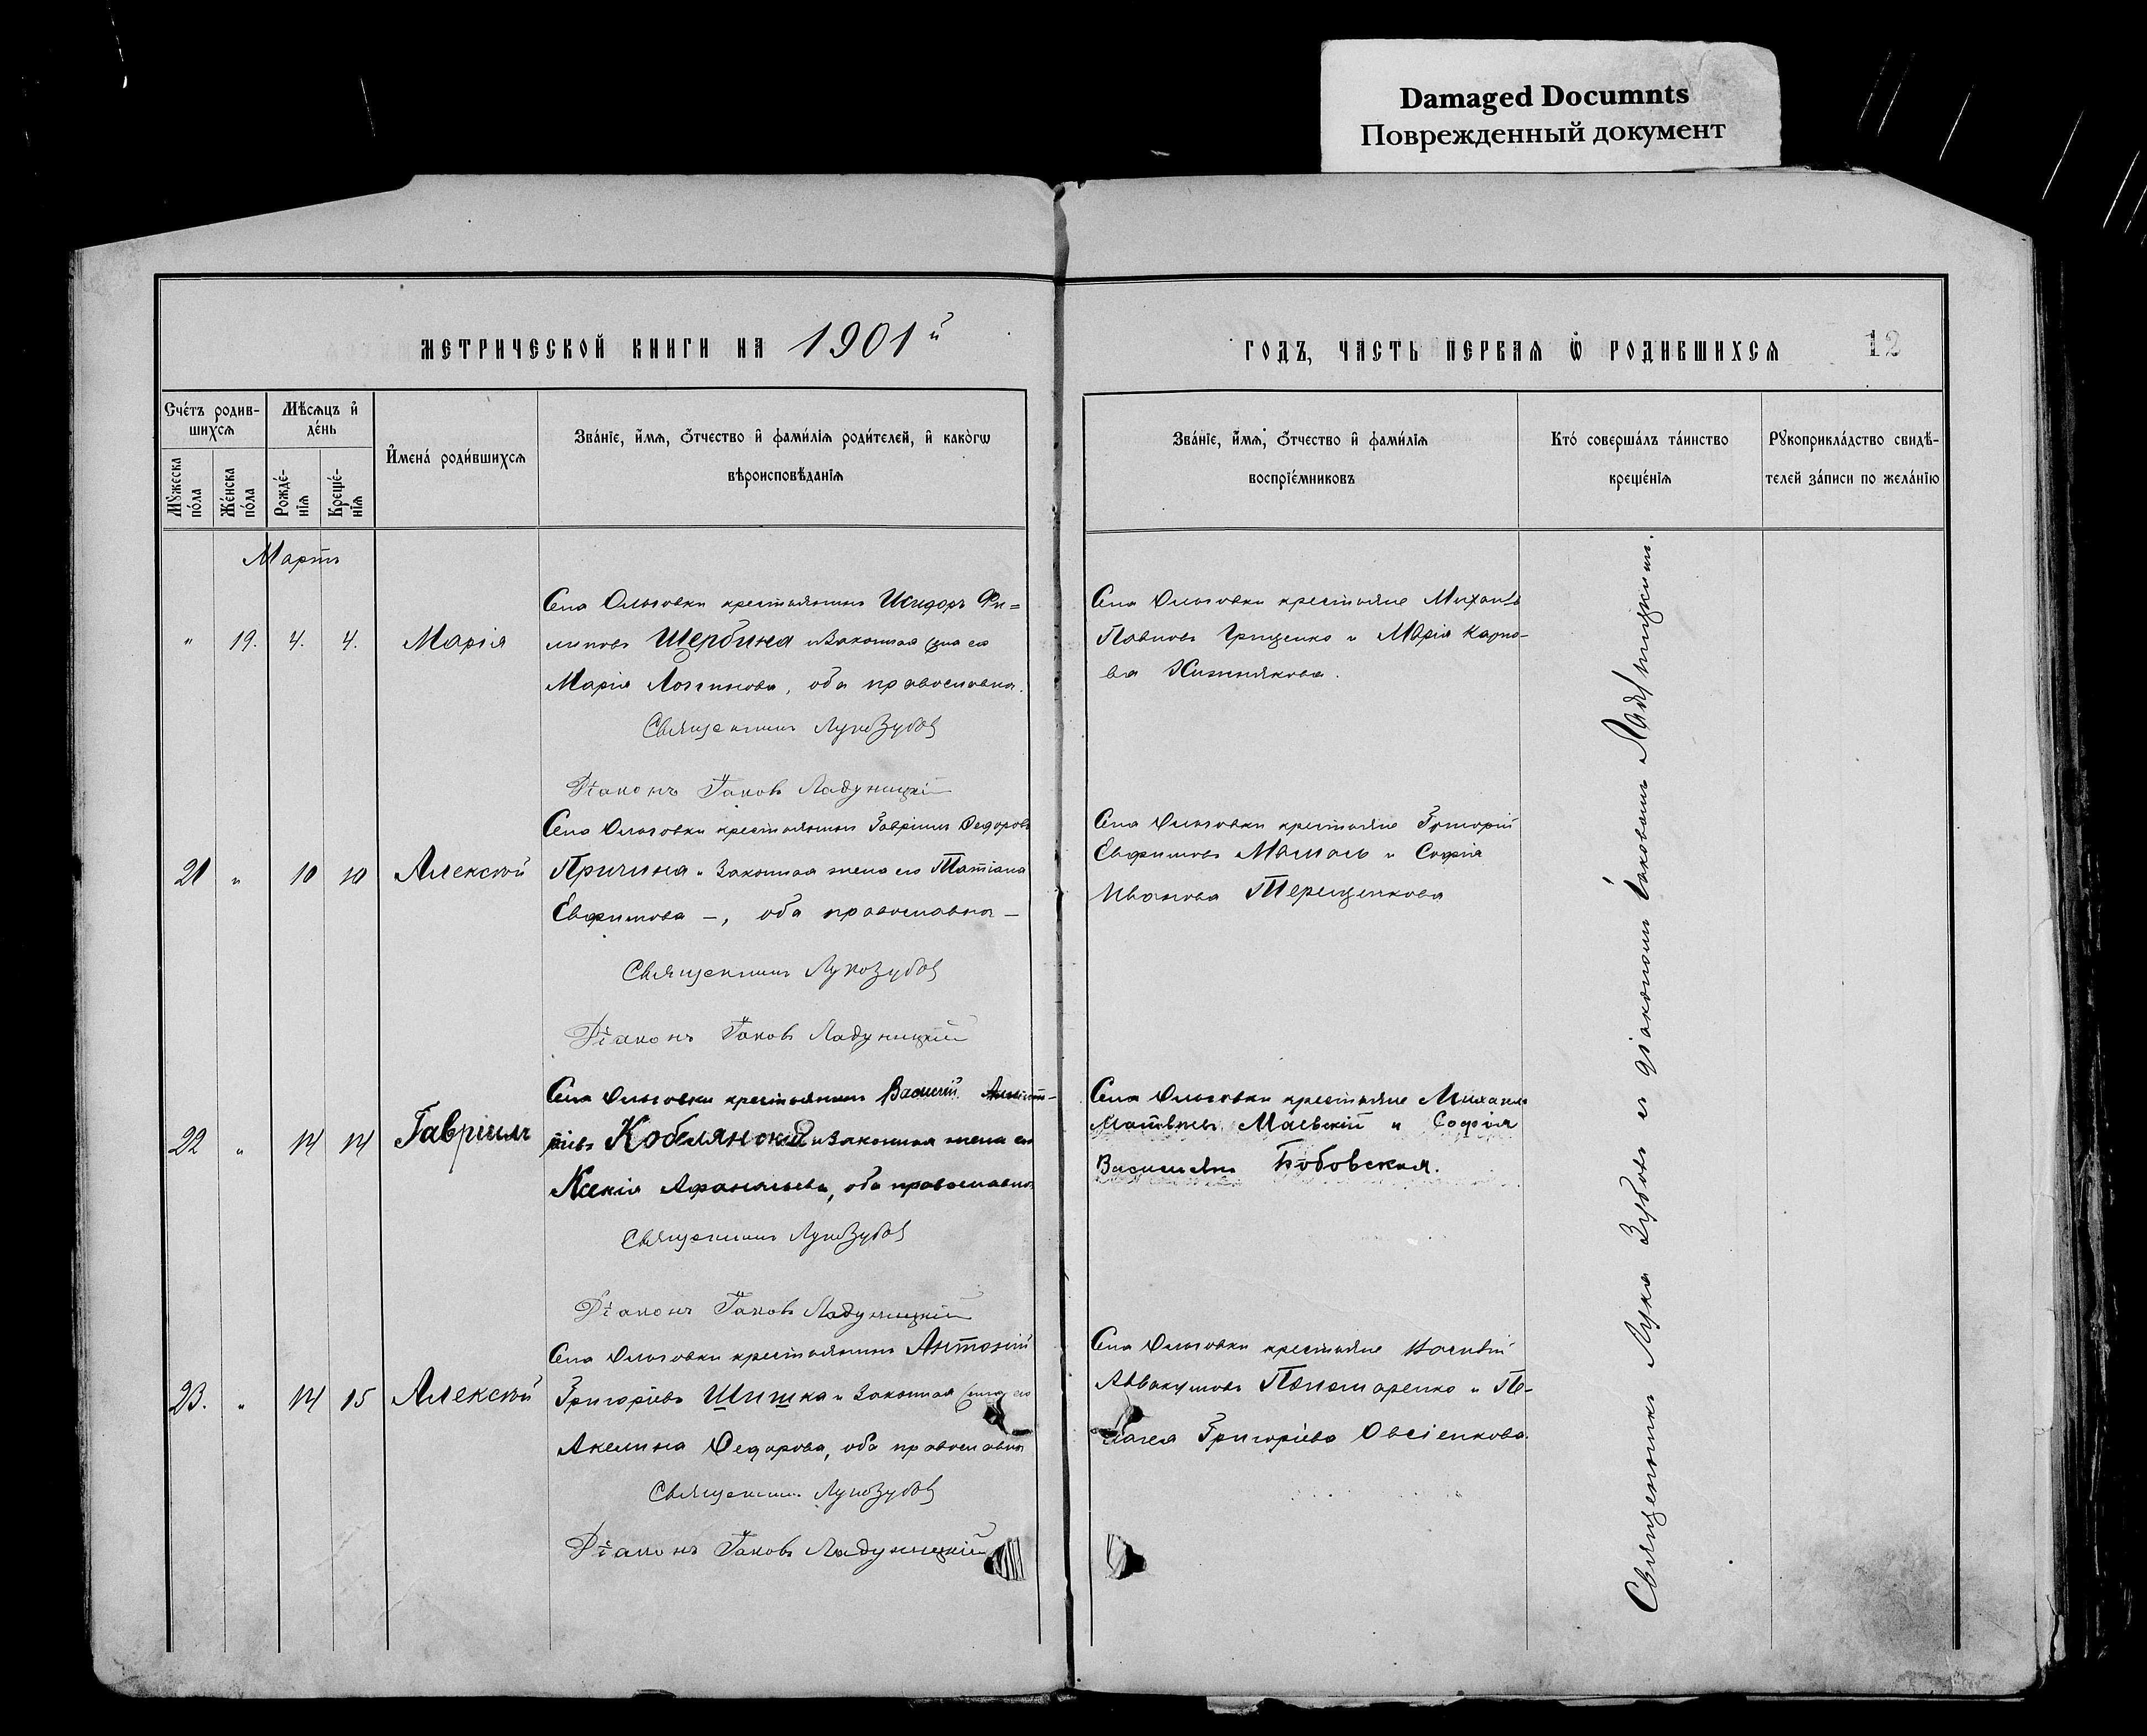 Damaged Documnts
Поврежденный документ
МЕТРИЧЕСКОЙ КНИГИ НА 1901й
ГОДЪ, ЧАСТЬ ПЕРВАЯ Ѡ РОДИВШИХСЯ
12
Счéтъ родив-
шихсѧ
Мѣсѧцъ и҆
дéнь
Мꙋ́жеска
пóла
Жéнска
пóла
Рождé-
нїѧ
Крещé-
нїѧ
И҆́менà роди́вшихсѧ
Звáнїе, и҆́мѧ, ѻ҆́тчество и҆ фами́лїѧ роди́телей, и҆ какóгѡ
вѣроисповѣ́данїѧ
Звáнїе, и҆́мѧ, ѻ҆́тчество и҆ фами́лїѧ
воспрїе́мниковъ
Ктó совершáлъ тáинство
крещéнїѧ
Рꙋкоприклáдство свидѣ́-
телей зáписи по желáнїю
Мартъ
" 19. 4. 4. Марія
Села Ольговки крестьянинъ Исидоръ Фи=
липовъ Щербина и законная жена его
Марія Логгинова, оба православна.
Священникъ Лука Зубовъ
Діаконъ Іаковъ Ладуницкій
Села Ольговки крестьяне Михаилъ
Павловъ Грищенко и Марія Карпо-
ва Хижнякова.
21 " 10 10 Алексѣй
Села Ольговки крестьянинъ Гавріилъ Ѳедоровъ
Причина и законная жена его Татіана
Евфимова –, оба православна –
Священникъ Лука Зубовъ
Діаконъ Іаковъ Ладуницкій
Села Ольговки крестьяне Григорій
Евфимовъ и Софія
Иванова Терещенкова
22 " 14 14 Гавріилъ
Села Ольговки крестьянинъ Василій
Кобелянскій и законная жена его
Ксенія Афанасьева, оба православна
Священникъ Лука Зубовъ
Діаконъ Іаковъ Ладуницкій
Села Ольговки крестьяне Михаилъ
Матвѣевъ Маевскій и Софія
Васильева Бобовская.
23. " 14 15 Алексѣй
Села Ольговки крестьянинъ Антоній
Григоріевъ Шишка и законная жена его
Акелина Ѳедорова, оба православна
Священникъ Лука Зубовъ
Діаконъ Іаковъ Ладуницкій
Села Ольговки крестьяне Василій
Аввакумовъ Пономаренко и Пе-
лагея Григоріева Овсіенкова.
Священникъ Лука Зубовъ съ діакономъ Іаковомъ Ладуницкимъ.